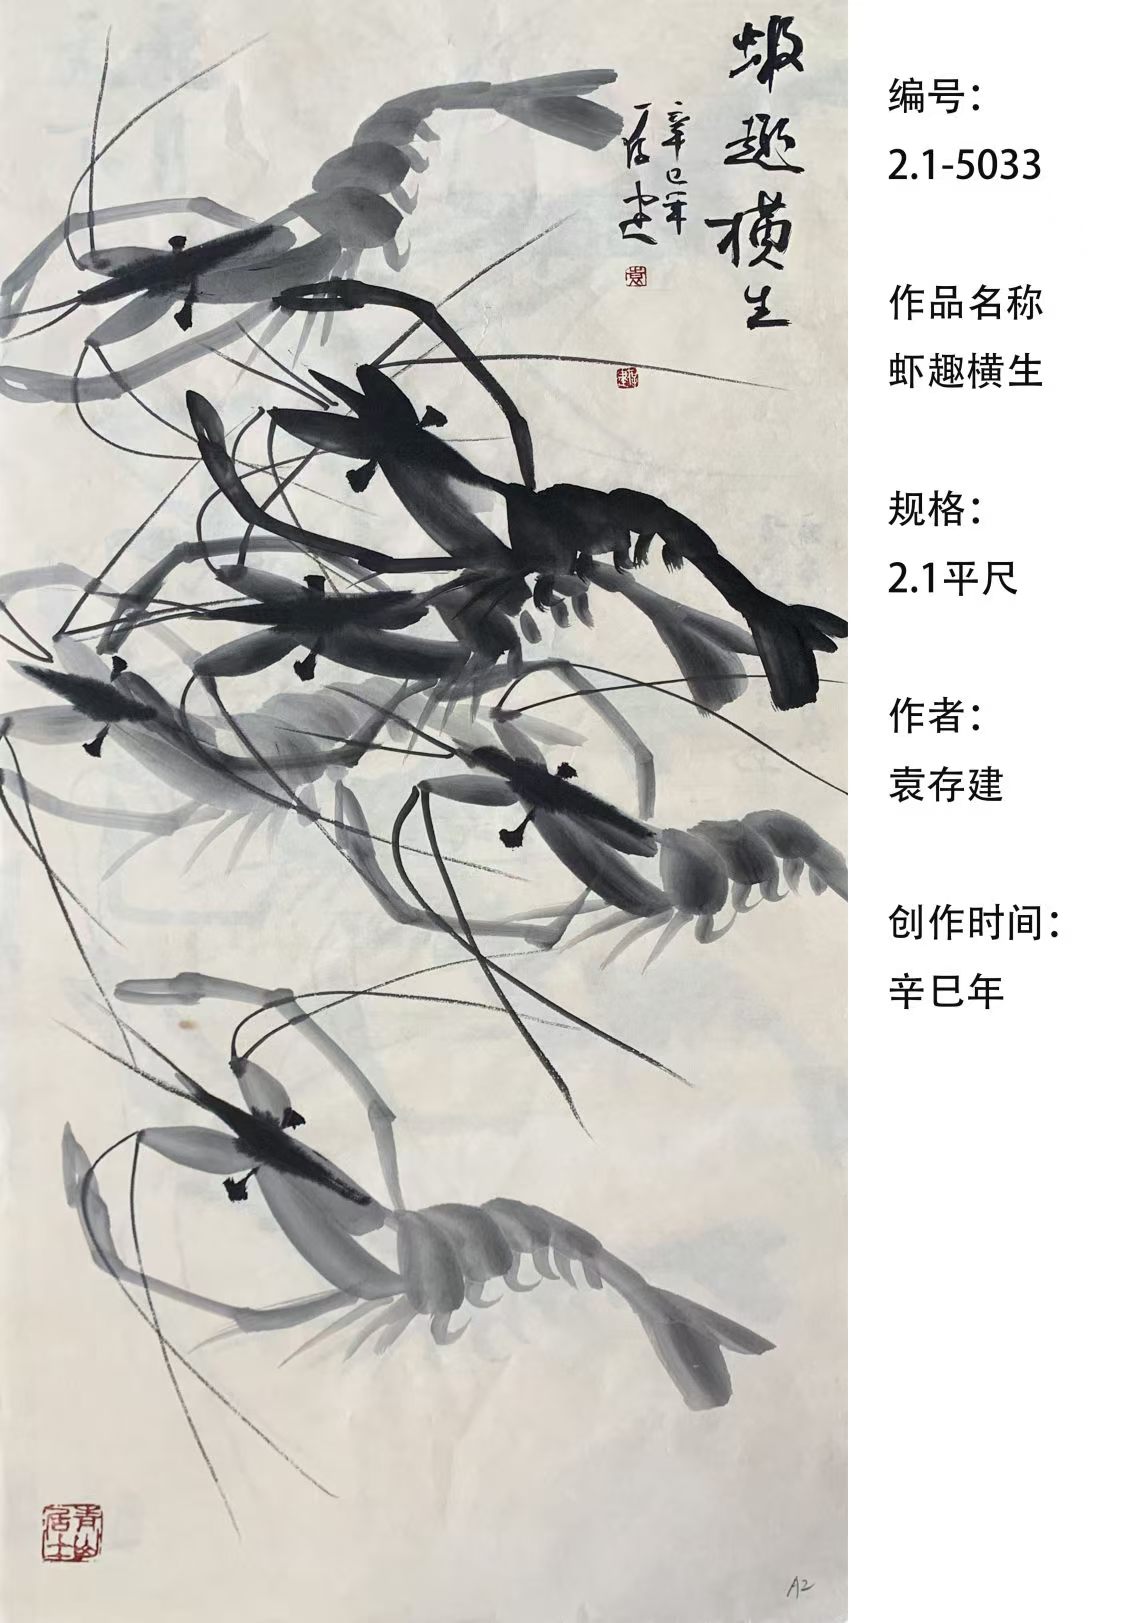 虾趣横生
辛巳年
存建
袁
青山居士
A2
编号：
2.1-5033
作品名称
虾趣横生
规格：
2.1平尺
作者：
袁存建
创作时间：
辛巳年